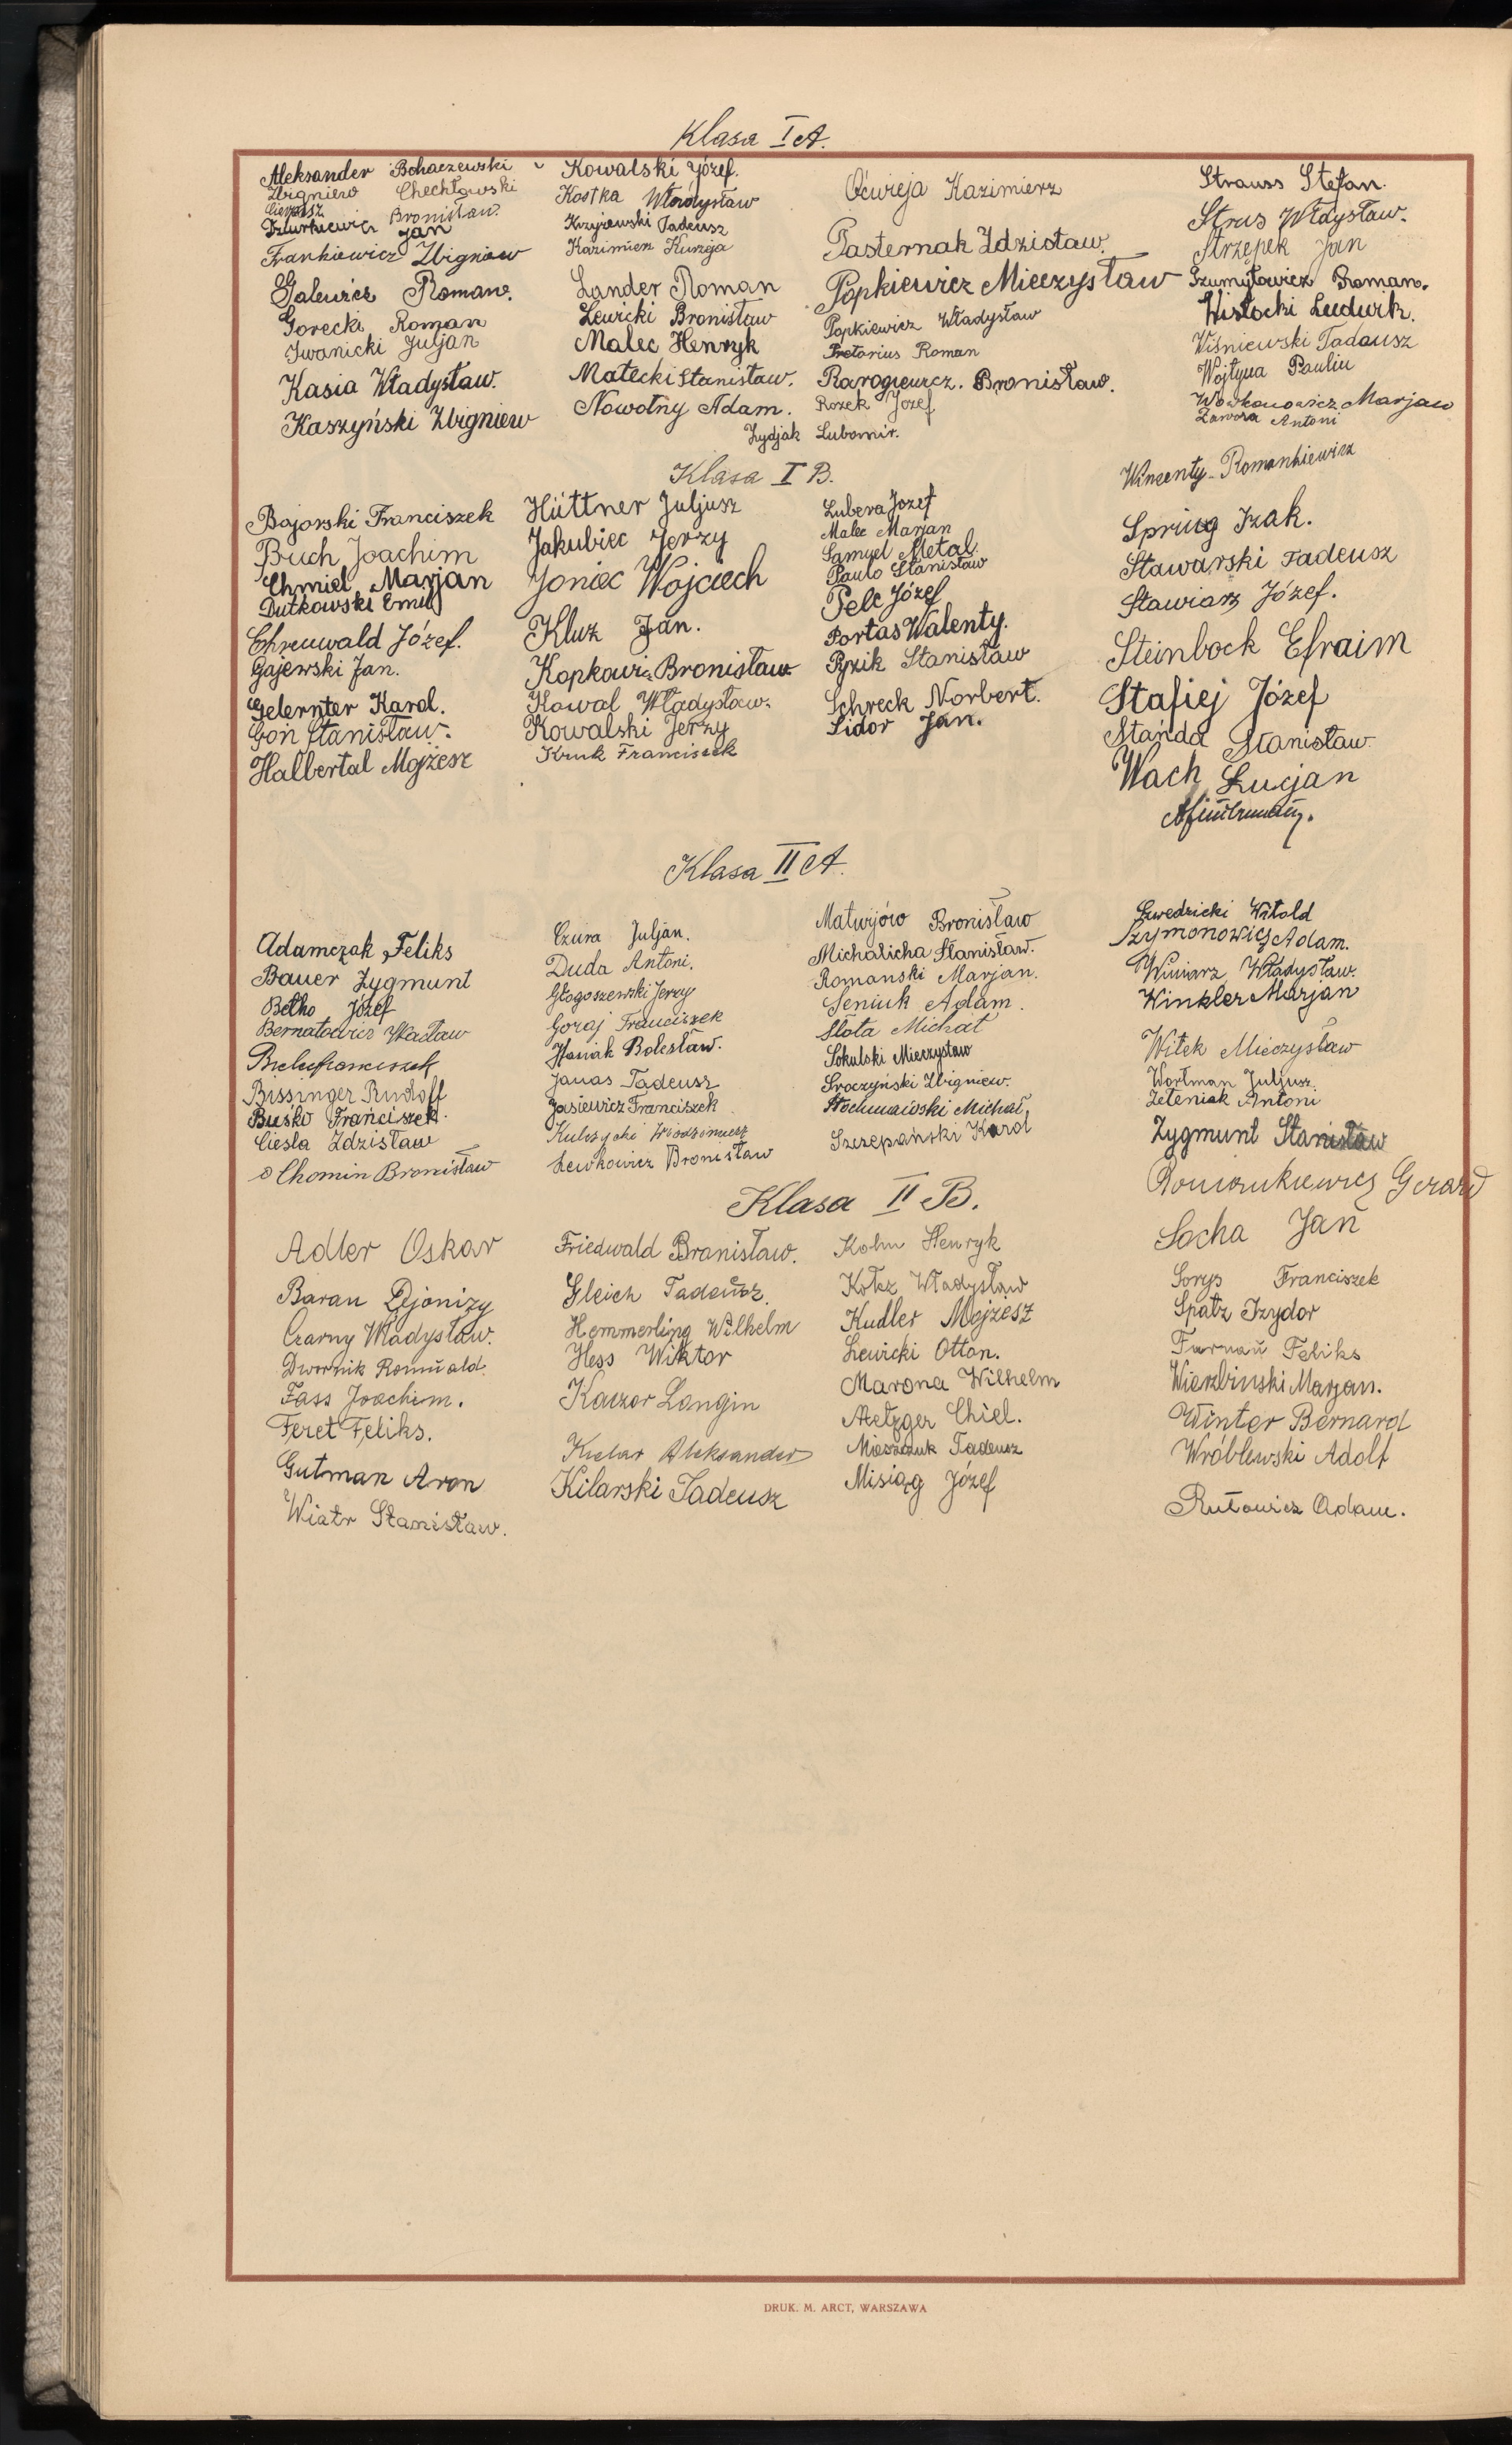 Klasa I A.
Aleksander Bohaczewski
Zbigniew Chechłowski
Cierpisz Bronisław.
Dziurkiewicz Jan
Frankiewicz Zbigniew
Galewicz Roman.
Gorecki Roman
Iwanicki Juljan
Kasia Władysław.
Kaszyński Zbigniew
Kowalski Józef.
Kostka Władysław
Krzyżewski Tadeusz
Kazimierz Kurzeja
Lander Roman
Lewicki Bronisław
Malec Henryk
Małecki Stanisław.
Nowotny Adam.
Żydjak Lubomir.
Oćwieja Kazimierz
Pasternak Zdzisław.
Popkiewicz Mieczysław
Popkiewicz Władysław
Pretorius Roman
Rarogiewicz. Bronisław.
Rozek Józef
Strauss Stefan.
Strus Władysław.
Strzępek Jan
Szumyłowicz Roman.
Wisłocki Ludwik.
Wiśniewski Tadeusz
Wojtyna Paulin
Wowkonowicz Marjan
Zawora Antoni
Klasa I B.
Bajorski Franciszek
Buch Joachim
Chmiel Marjan
Dutkowski Emil
Ehrenwald Józef.
Gajewski Jan.
Gelernter Karol.
Goń Stanisław.
Halbertal Mojżesz
Hüttner Juljusz
Jakubiec Jerzy
Joniec Wojciech
Kluz Jan.
Kopkowicz Bronisław
Kowal Władysław.
Kowalski Jerzy
Kruk Franciszek
Lubera Józef
Malec Marjan
Samuel Metal.
Paulo Stanisław
Pelc Józef
Portas Walenty.
Pyzik Stanisław
Schreck Norbert.
Sidor Jan.
Wincenty Romankiewicz
Spring Izak.
Stawarski Tadeusz
Stawiarz Józef.
Steinbock Efraim
Stafiej Józef
Stańda Stanisław
Wach Lucjan
Klasa II A.
Adamczak Feliks
Bauer Zygmunt
Betko Józef
Bernatowicz Wacław
Biel Franciszek
Bissinger Rudolf
Buśko Franciszek.
Cieśla Zdzisław
Chomin Bronisław
Czura Juljan.
Duda Antoni.
Głogoszewski Jerzy
Goraj Franciszek
Haniak Bolesław.
Janas Tadeusz
Jasiewicz Franciszek
Kulczycki Włodzimierz
Lewkowicz Bronisław
Matwijów Bronisław
Michalicha Stanisław.
Romanski Marjan.
Seniuk Adam.
Słota Michał
Sokulski Mieczysław
Sroczyński Zbigniew.
Stochmański Michał,
Szczepański Karol
Szwedzicki Witold
Szymonowicz Adam.
Winiarz Władysław.
Winkler Marjan
Witek Mieczysław
Wortman Juljusz.
Zeleniak Antoni
Zygmunt Stanisław
Romaszukiewicz Gerard
Klasa II B.
Adler Oskar
Baran Dejonizy
Czarny Władysław.
Dwornik Romuald.
Fass Joachim.
Feret Feliks.
Gutman Aron
Wiatr Stanisław.
Friedwald Bronisław.
Gleich Tadeusz.
Hemmerling Wilhelm
Hess Wiktor
Kaczor Longin
Kielar Aleksander
Kilarski Tadeusz
Kohn Henryk
Kołcz Władysław
Kudler Mojżesz
Lewicki Otton.
Marona Wilhelm
Metzger Chiel.
Mieszczuk Tadeusz
Misiąg Józef
Socha Jan
Sorys Franciszek
Spatz Izydor
Furnań Feliks
Wierzbinski Marjan.
Winter Bernard
Wróblewski Adolf
Rutowicz Adam.
DRUK. M. ARCT, WARSZAWA